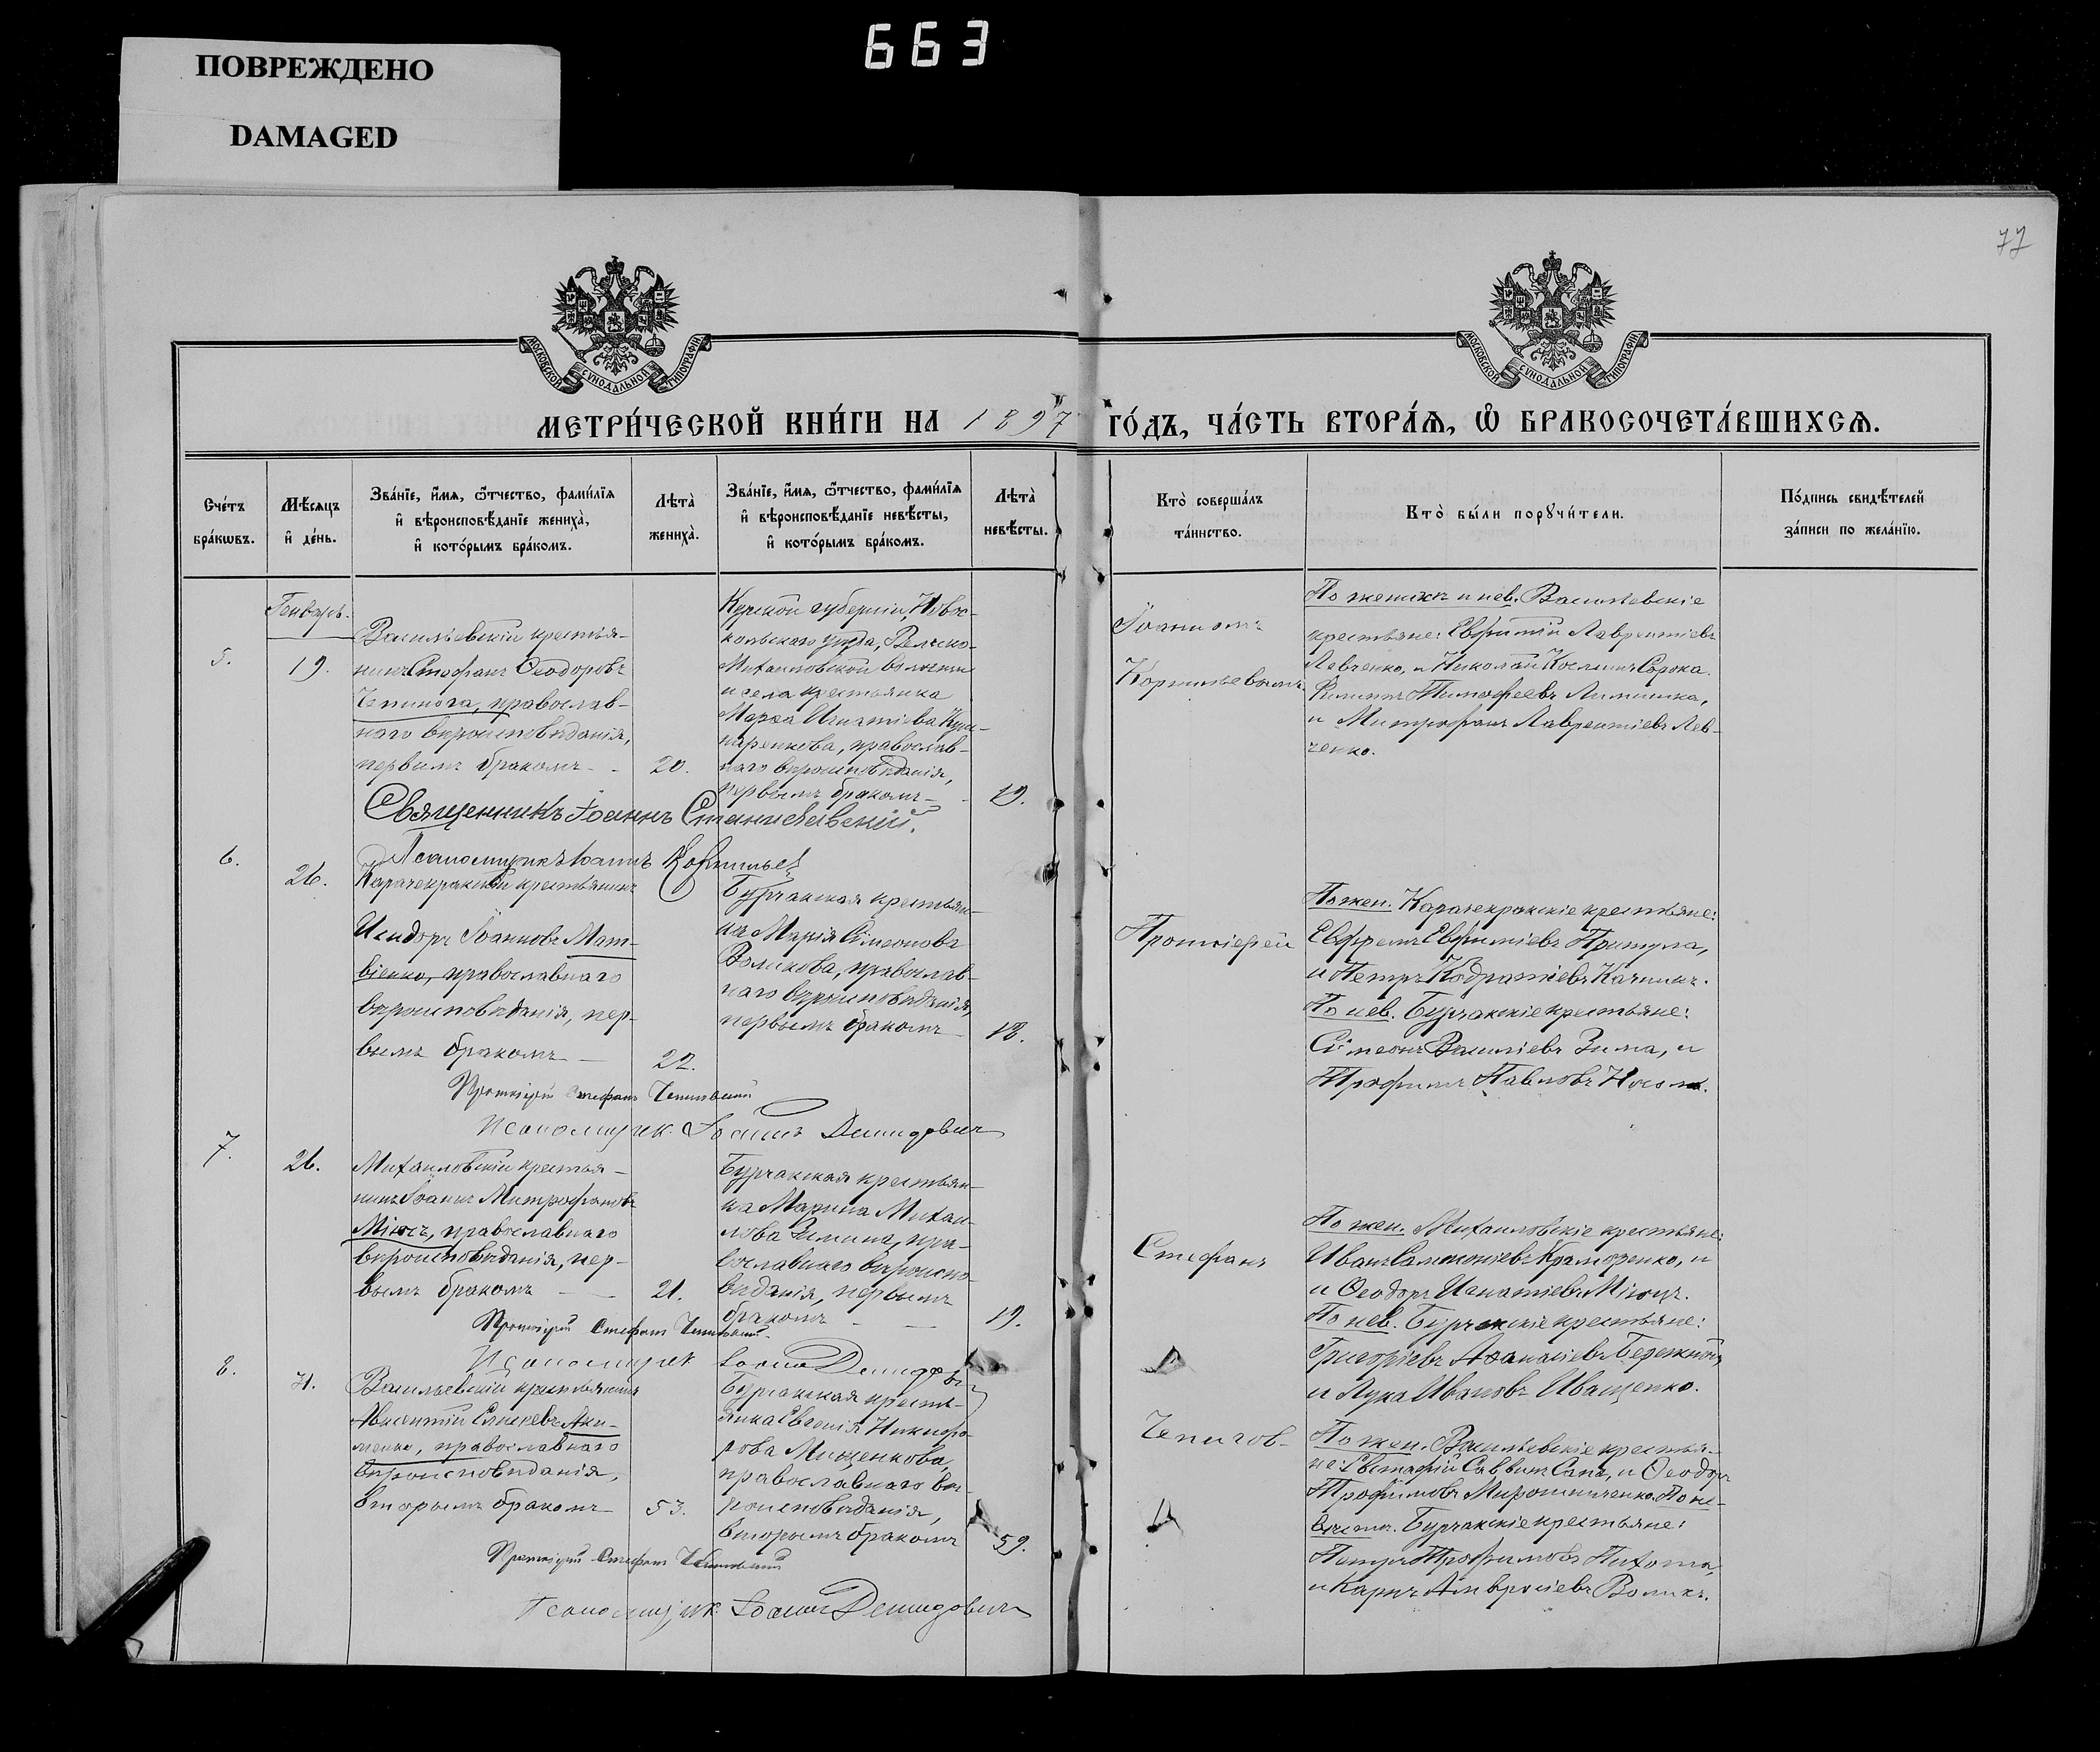 663
ПОВРЕЖДЕНО
DAMAGED
77
МОСКОВСКОЙ СУНОДАЛЬНОЙ ТИПОГРАФІИ
МОСКОВСКОЙ СУНОДАЛЬНОЙ ТИПОГРАФІИ
МЕТРИ́ЧЕСКОЙ КНИ́ГИ НА 1897 ГО́ДЪ, ЧА́СТЬ ВТОРА́Ѧ, Ѽ БРАКОСОЧЕТА́ВШИХСѦ.
Сче́тъ
бра́кѡвъ.
Мѣ́сѧцъ
и҆ де́нь.
Зва́нїе, и҆́мѧ, ѻ҆́тчество, фами́лїѧ
и҆ вѣроисповѣ́данїе жениха̀,
и҆ кото́рымъ бра́комъ.
Лѣта̀
жениха̀.
Зва́нїе, и҆́мѧ, ѻ҆́тчество, фами́лїѧ
и҆ вѣроисповѣ́данїе невѣ́сты,
и҆ кото́рымъ бра́комъ.
Лѣта̀
невѣ́сты.
Кто̀ соверша́лъ
та́инство.
Кто̀ бы́ли порꙋчи́тели.
По́дпись свидѣ́телей
за́писи по жела́нїю.
Генварь.
5.
19.
Васильевскій крестья-
нинъ Стефанъ Ѳеодоровъ
Чепинога, православ-
наго вѣроисповѣданія,
первымъ бракомъ
20.
Курской губерніи, Ново-
кольскаго уѣзда,
Михаиловской волости
и села крестьянка
Марѳа Игнатіева
православ-
наго вѣроисповѣданія,
первымъ бракомъ
19.
Іоанномъ
Корнильевымъ
По жениху и нев. Васильевскіе
крестьяне: Евфимій Лаврентіевъ
Левченко, и Николай Косминъ Сорока.
Филиппъ Тимофеевъ
и Митрофанъ Лаврентіевъ Лев-
ченко.
Священникъ Іоаннъ Станиславскій.
Псаломщикъ Іоаннъ Корнильев
6.
26.
Карачекракскій крестьянинъ
Исидоръ Іоанновъ Мат-
віенко, православнаго
вѣроисповѣданія, пер-
вымъ бракомъ
22.
Бурчакская крестьян-
ка Марія Сімеонова
Воликова, православ-
наго вѣроисповѣданія,
первымъ бракомъ
18.
Протоіерей
По жен. Карачекракскіе крестьяне:
Ефремъ Евфиміевъ Притула,
и Петръ Кодратіевъ
По нев. Бурчакскіе крестьяне:
Сімеонъ Василіевъ Зима, и
Трофимъ Павловъ
Протоіерей Стефанъ
Псаломщик. Іоаннъ Демидович
7.
26.
Михаиловскій крестья-
нинъ Іоаннъ Митрофановъ
православнаго
вѣроисповѣданія, пер-
вымъ бракомъ
21.
Бурчакская крестьян-
ка Марина Михаи-
лова Зимина, пра-
вославнаго вѣроиспо-
вѣданія, первымъ
бракомъ
19.
Стефанъ
По жен. Михаиловскіе крестьяне:
Иванъ Самсоніевъ Краморенко, и
и Ѳеодоръ Игнатіевъ
По нев. Бурчакскіе крестьяне:
Григоріевъ Аѳанасіевъ Бережной
и Лука Ивановъ Иващенко.
Протоіерей Стефанъ
Псаломщик Іоанн Демидович
8.
31.
Васильевскій крестьянинъ
православнаго
вѣроисповѣданія,
вторымъ бракомъ
53.
Бурчакская кресть-
янка Евгенія Никифо-
рова Мищенкова,
православнаго вѣ-
роисповѣданія,
вторымъ бракомъ
59.
По жен. Васильевскіе крестья-
не: Евстафій Саввинъ Сапа, и Ѳеодоръ
Трофимовъ Мирошниченко. По не-
вѣстѣ. Бурчакскіе крестьяне:
Петръ Трофимовъ Пихота,
и Карпъ Амвросіевъ Воликъ.
Протоіерей Стефанъ
Псаломщик. Іоанн Демидович